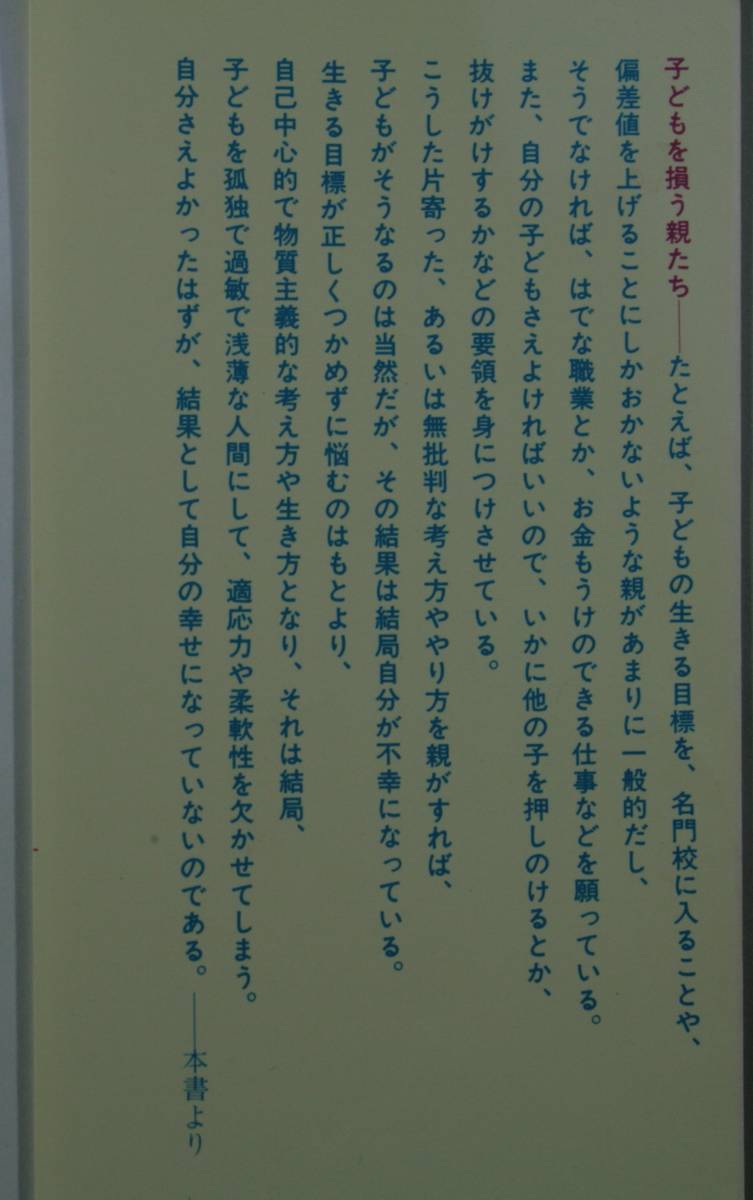 子どもを損う親たち――たとえば、子どもの生きる目標を、名門校に入ることや、
偏差値を上げることにしかおかないような親があまりに一般的だし、
そうでなければ、はでな職業とか、お金もうけのできる仕事などを願っている。
また、自分の子どもさえよければいいので、いかに他の子を押しのけるとか、
抜けがけするかなどの要領を身につけさせている。
こうした片寄った、あるいは無批判な考え方ややり方を親がすれば、
子どもがそうなるのは当然だが、その結果は結局自分が不幸になっている。
生きる目標が正しくつかめずに悩むのはもとより、
自己中心的で物質主義的な考え方や生き方となり、それは結局、
子どもを孤独で過敏で浅薄な人間にして、適応力や柔軟性を欠かせてしまう。
自分さえよかったはずが、結果として自分の幸せになっていないのである。――本書より